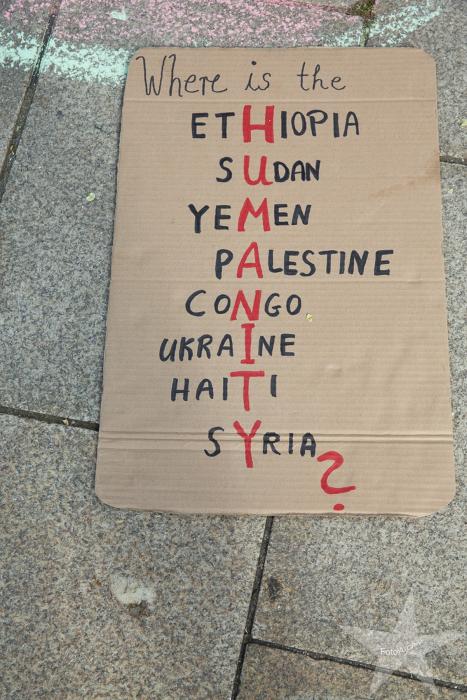 Where is the
ETHIOPIA
SUDAN
YEMEN
PALESTINE
CONGO
UKRAINE
HAITI
SYRIA?